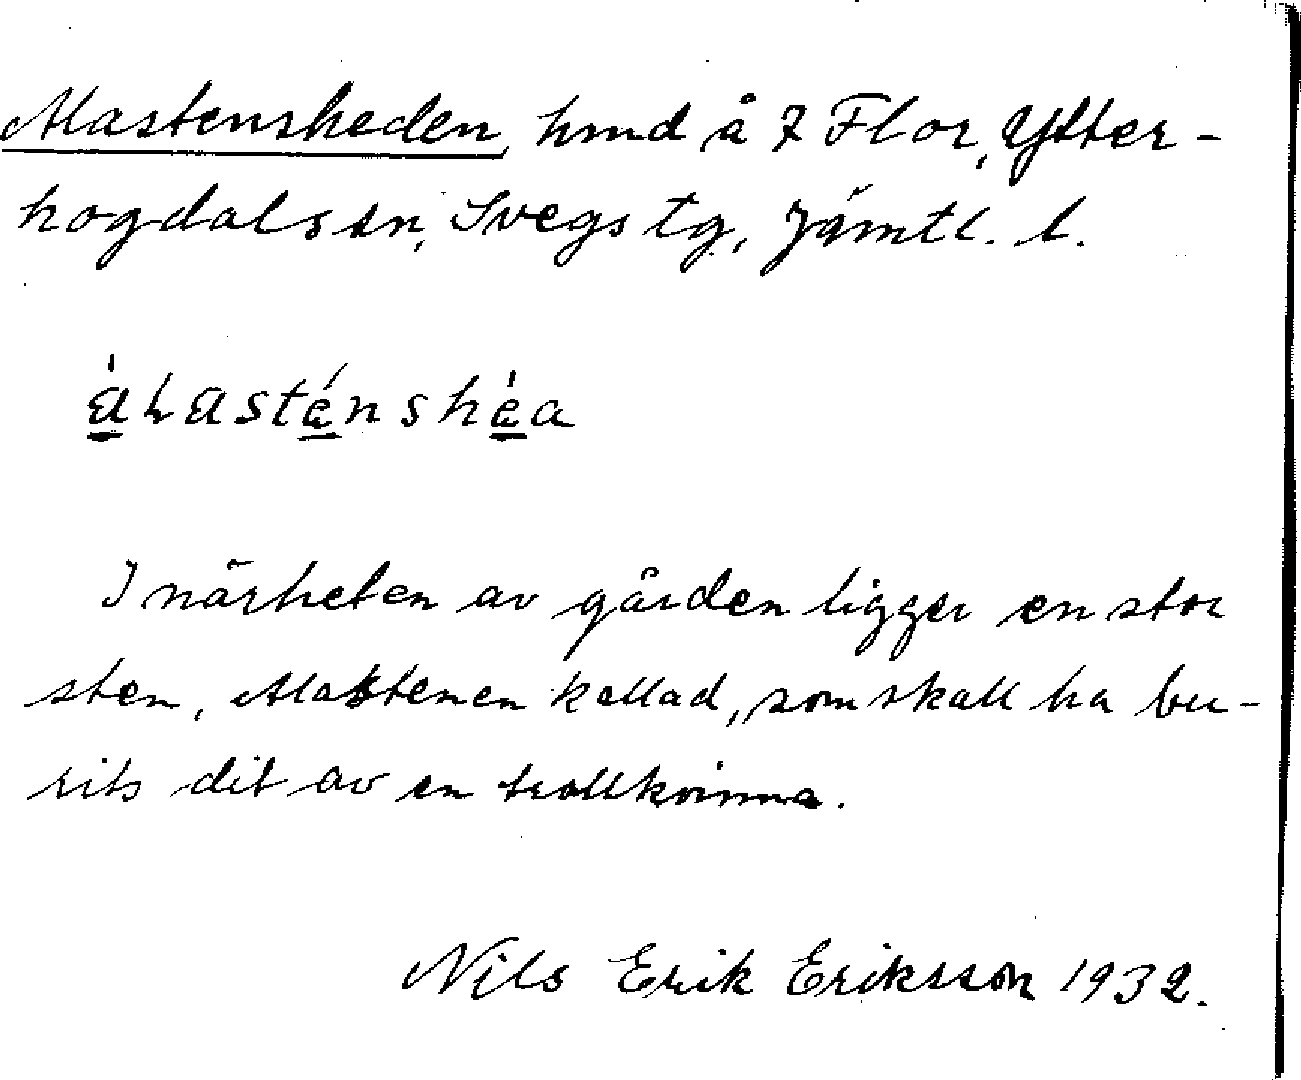 Alastensheden, hmd å 7 Flor, Ytter-
hogdals sn, Svegs tg, Jämtl. l.
àLasténshèa
I närheten av gården ligger en stor
sten, Alastenen kallad, som skall ha bu-
rits dit av en trollkvinna.
Nils Erik Eriksson 1932.